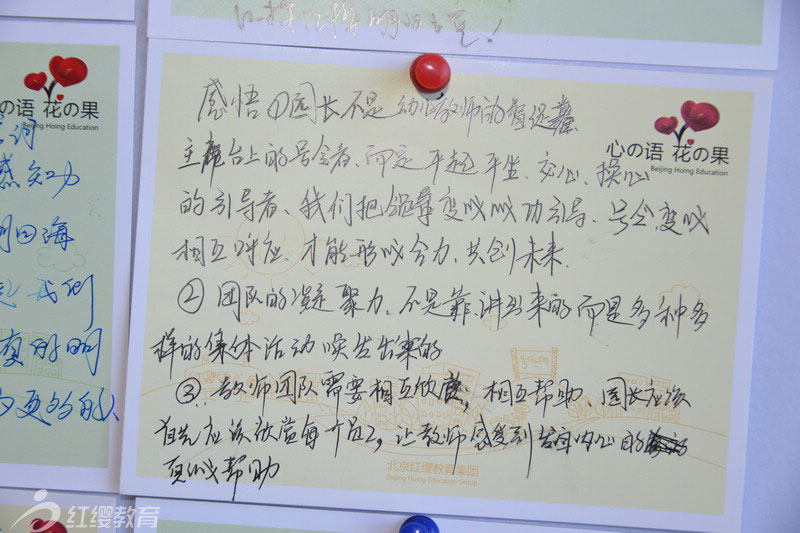 红樱红樱明日之星!
心の语 花の果
Beijing Hoing Education
词
感知力
四海
我们
有的时
更多的人
心の语 花の果
Beijing Hoing Education
感悟①园长不是幼儿教师的
主席台上的号令者、而是平起平坐、交心、操心
的引导者、我们把领导变成成功引导、号令变成
相互呼应、才能形成合力、共创未来.
②团队的凝聚力、不是靠讲出来的而是多种多
样的集体活动唤发出来的
③、教师团队需要相互欣赏;相互帮助、园长应该
首先应该欣赏每个员工,让教师感受到发自内心的
真诚帮助
北京红缨教育集团
Beijing Hoing Education Group
红缨教育